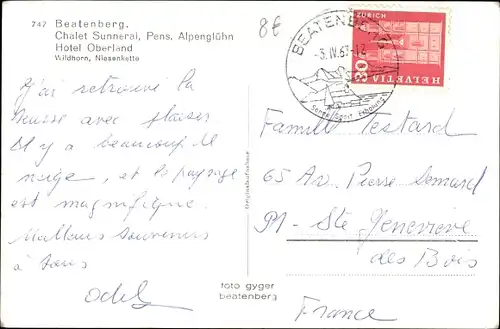 747 Beatenberg.
Chalet Sunnerai, Pens. Alpenglühn
Hotel Oberland
Wildhorn, Niesenkette
8€
BEATENBERG
-3.IV.67-12
Sonne Sport Erholung
ZÜRICH
HELVETIA
30
J'ai retrouvé la
Suisse avec plaisir
Il y a beaucoup de
neige, et le paysage
est magnifique.
Meilleurs souvenirs
à tous
Odel
Originalaufnahme
foto gyger
beatenberg
Famille Testard
65 Av. Pierre Semard
91 - Ste Genevieve
des Bois
France